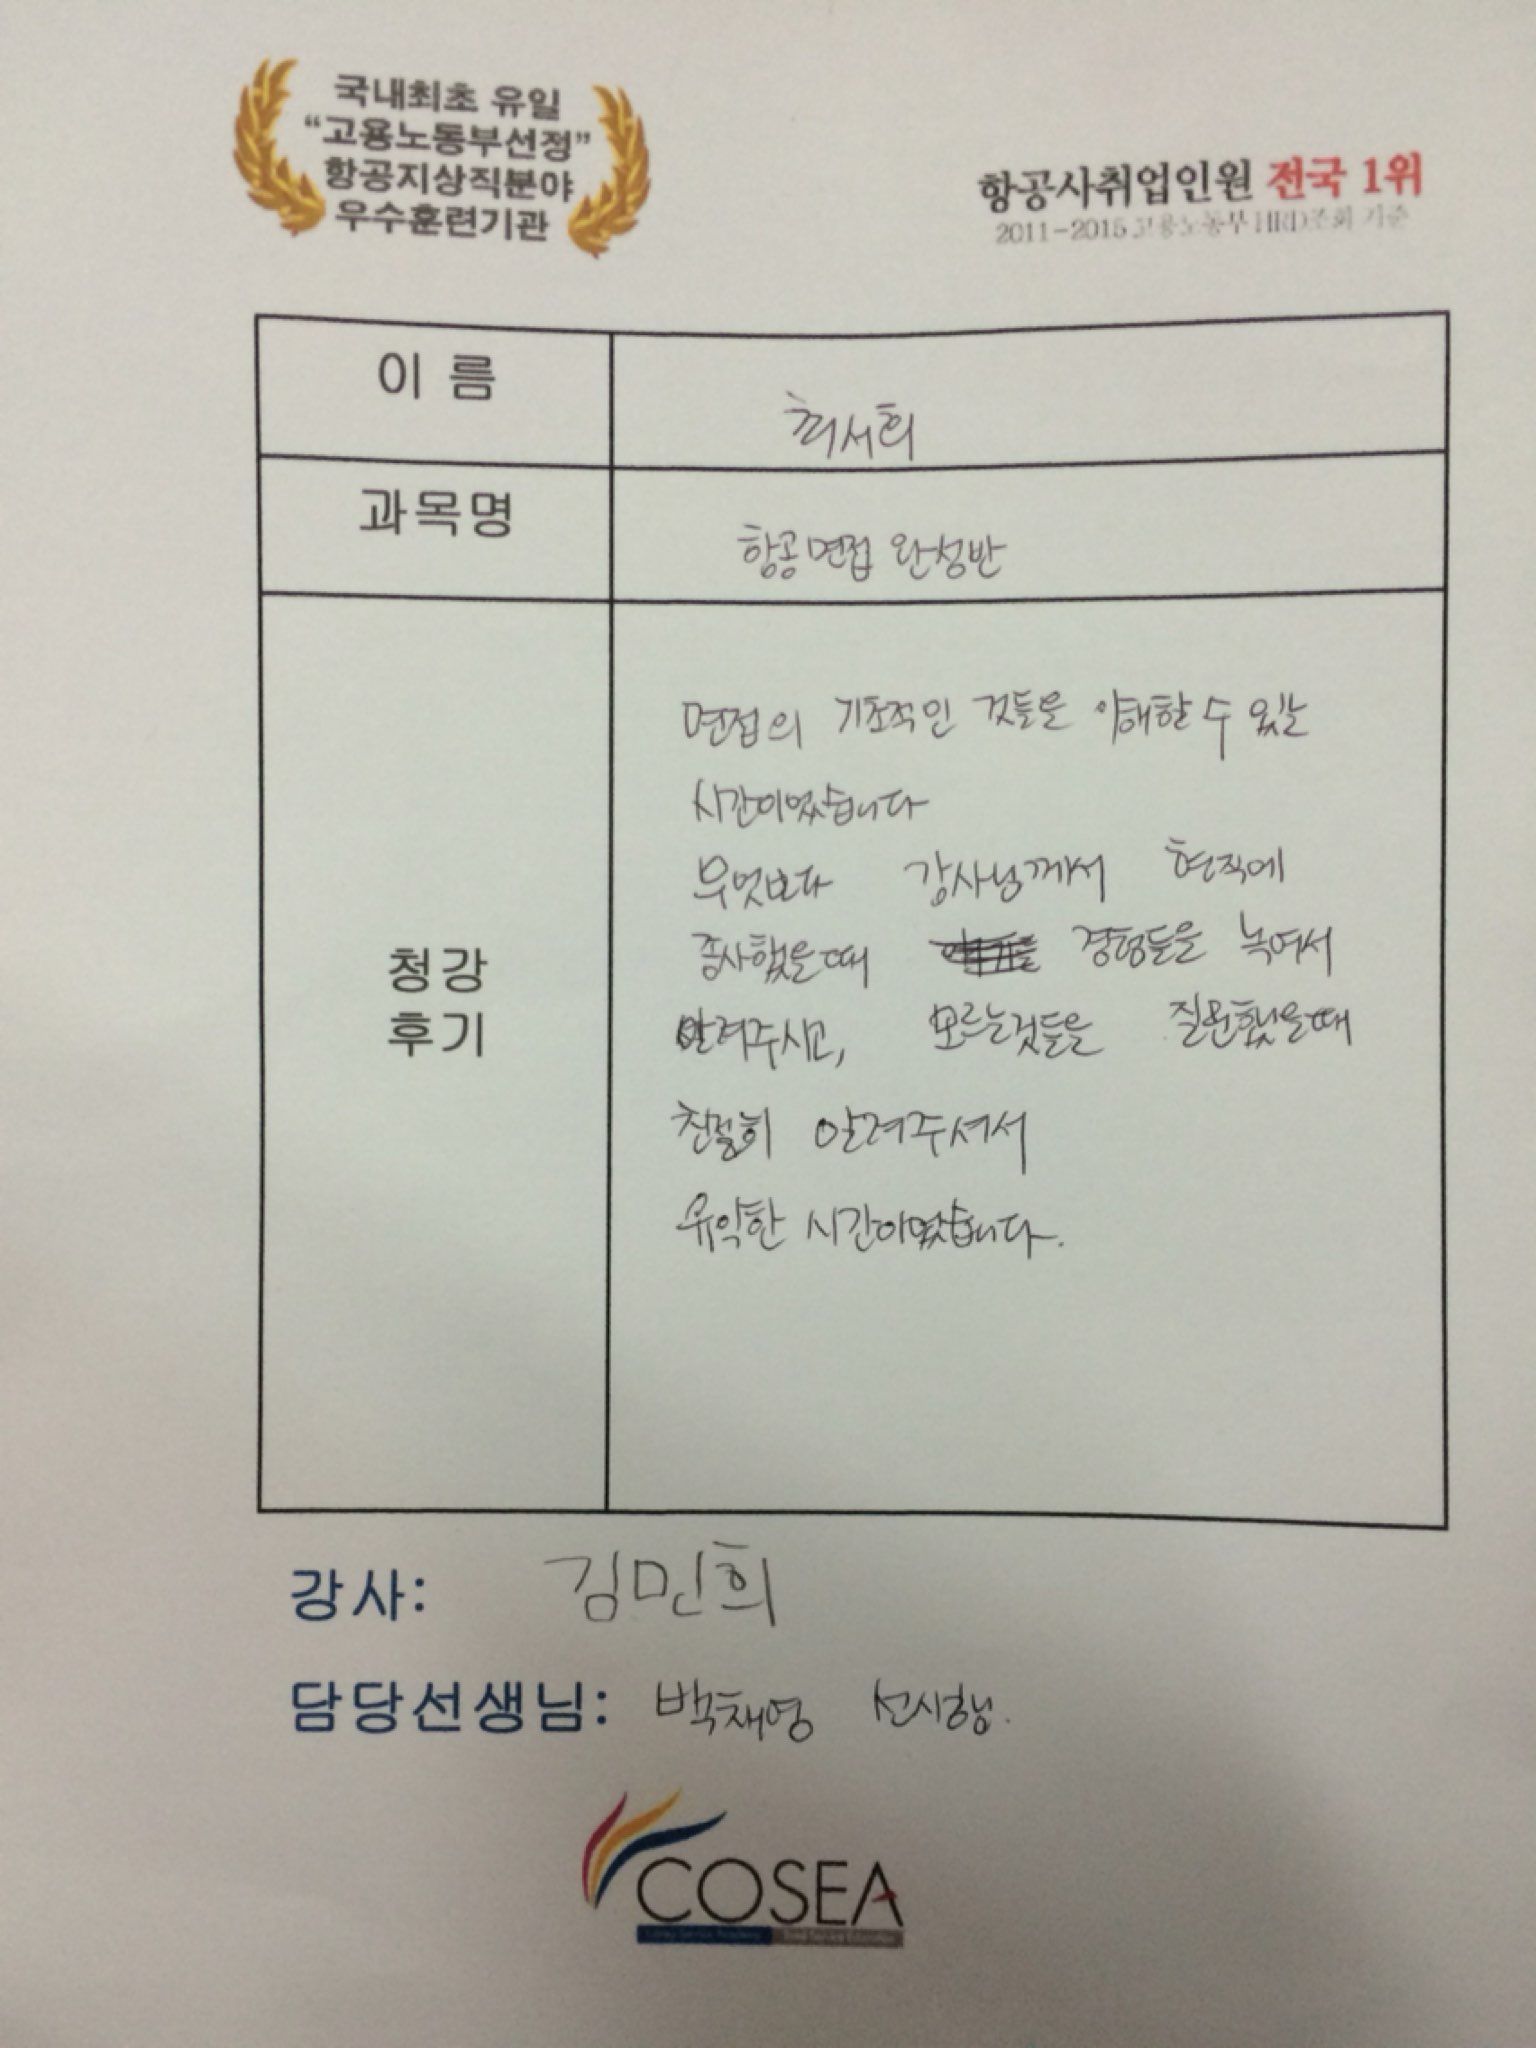 국내최초 유일
“고용노동부선정”
항공지상직분야
우수훈련기관
항공사취업인원 전국 1위
2011-2015 고용노동부 HRD조회 기준
이 름
최서희
과목명
항공면접 완성반
청강
후기
면접의 기초적인 것들을 이해할 수 있는
시간이었습니다
무엇보다 강사님께서 현직에
종사했을때 경험들을 녹여서
알려주시고, 모르는것들을 질문했을때
친절히 알려주셔서
유익한 시간이였습니다.
강사: 김민희
담당선생님: 박채영 선생님.
COSEA